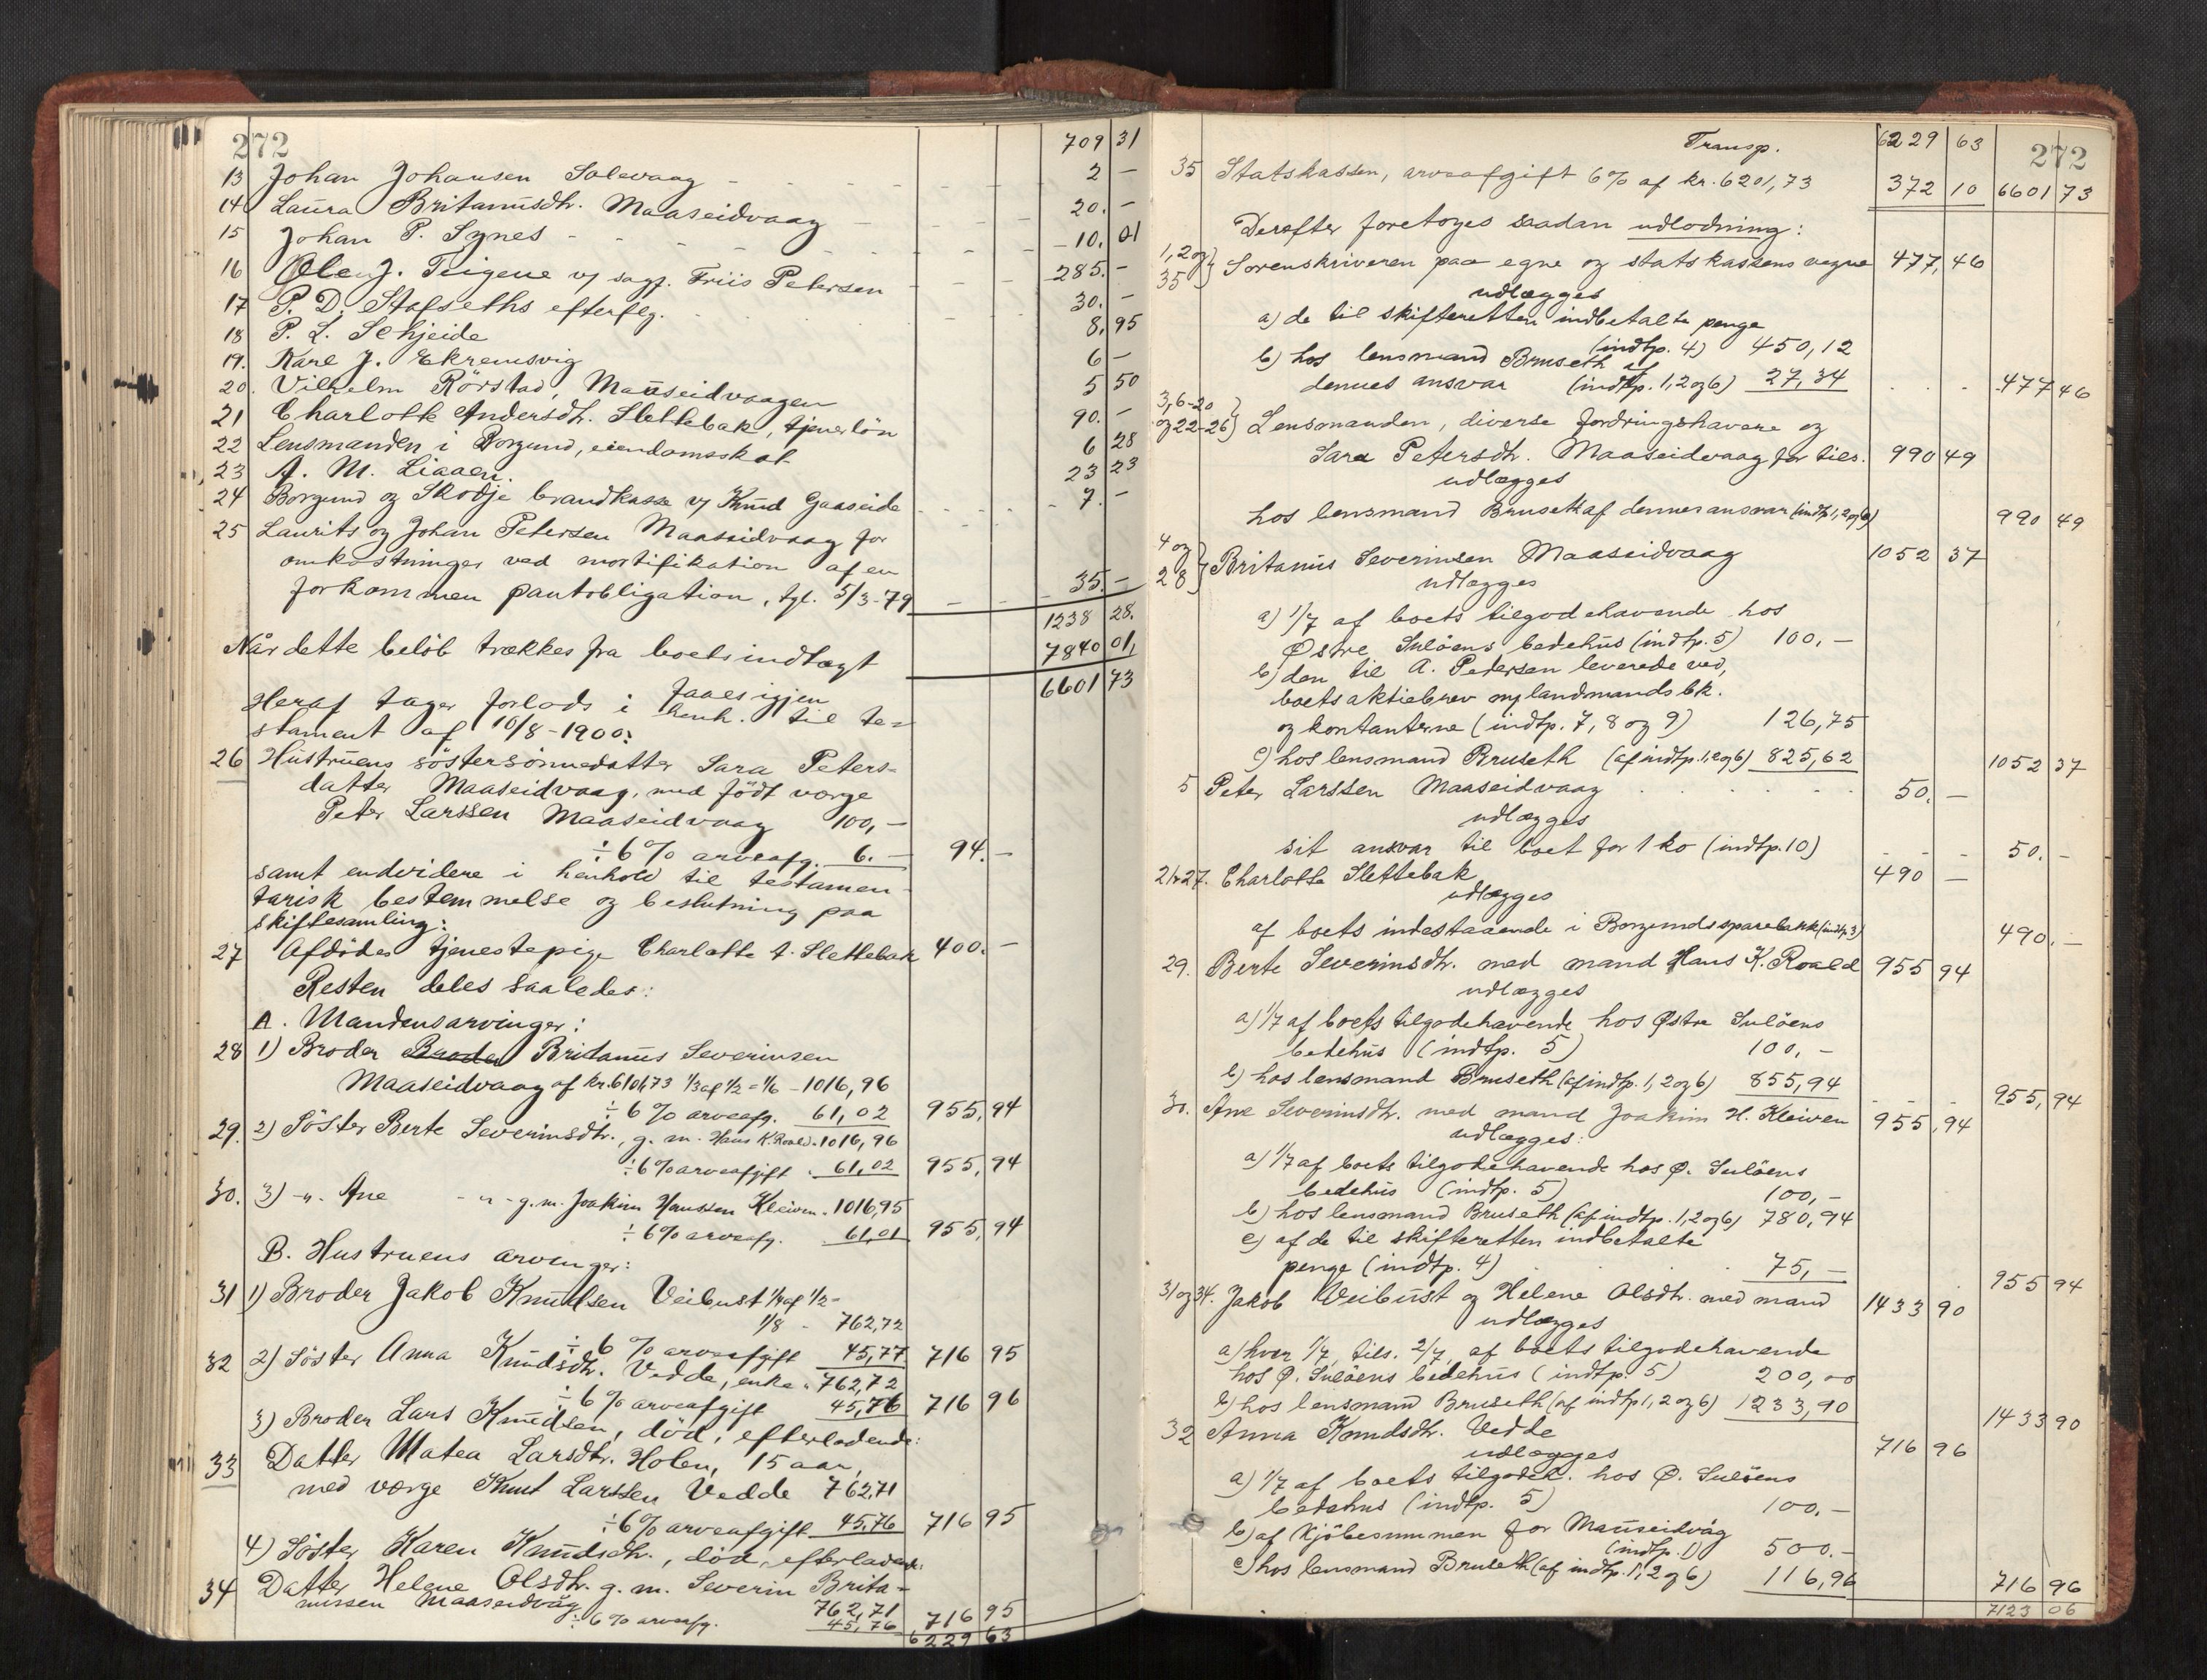 272
709 31
13 Johan Johansen Solevaag - 2 -
14 Laura Britanusdtr. Maaseidvaag - 20. -
15 Johan P. Synes - 10. 01
16 Ole J. Teigene v/ sagf. Friis Petersen - 285. -
17 P. D. Stafseths efterflg. 30. -
18 P. L. Schjeide 8. 95
19. Karl J. Ekremsvig 6 -
20. Vilhelm Rörstad, Mauseidvaagen 5 50
21 Charlotte Andersdtr. Slettebak, tjenerlön 90. -
22 Lensmanden i Borgund, eiendomsskat 6 28
23 A. M. Liaaen. 23 23
24 Borgund og Skodje brandkasse v/ Knud Gaaseide 7. -
25 Laurits og Johan Petersen Maaseidvaag for
omkostninger ved mortifikation af en
forkommen pantobligation, tgl. 5/3-79 35. -
1238 28.
Når dette belöb trækkes fra boets indtægt 7840 01,
faaes igjen 6601 73
Heraf tager forlods i henh. til te=
stament af 10/8-1900:
26 Hustruens söstersönnedatter Sara Peters=
datter Maaseidvaag, med födt værge
Peter Larssen Maaseidvaag 100, -
÷ 6% arveafg. 6. - 94. -
samt endvidere i henhold til testamen-
tarisk bestemmelse og beslutning paa
skiftesamling:
27 Afdödes tjenestepige Charlotte A. Slettebak 400. -
Resten deles saaledes:
A. Mandens arvinger:
28 1) Broder Broder Britanus Severinsen
Maaseidvaag af kr. 6101,73 1/3 af 1/2 = 1/6 - 1016,96
÷ 6% arveafg. 61,02 955, 94
29. 2) Söster Berte Severinsdtr., g. m. Hans K. Roald. 1016,96
÷ 6% arveafgift . 61,02 955, 94
30. 3) -"- Ane -"- g. m. Joakim Hanssen Kleiven. 1016,95
÷ 6% arveafg. 61,01 955, 94
B. Hustruens arvinger:
31 1) Broder Jakob Knudsen Veibust 1/4 af 1/2 =
1/8 - 762,72
÷ 6 % arveafgift 45,77 716 95
32 2) Söster Anna Knudsdtr. Vedde, enke " 762,72
÷ 6 % arveafgift 45,76 716 96
3) Broder Lars Knudsen, död, efterladende:
33 Datter Matea Larsdtr. Holen, 15 aar,
med værge Knut Larssen Vedde 762,71
÷ 6% arveafgift 45,76 716 95
4) Söster Karen Knudsdtr., död, efterladende:
34 Datter Helene Olsdtr. g. m. Severin Brita-
nussen Maaseidvåg 762,71
÷ 6 % arveafg. 45,76 716 95
6229 63
272
Transp. 6229 63
35 Statskassen, arveafgift 6% af kr. 6201,73 372 10 6601 73
Derefter foretoges saadan udlodning:
1, 2 og 35 } Sorenskriveren paa egne og statskassens vegne 477, 46
udlægges
a) de til skifteretten indbetalte penge
(indtp. 4) 450,12
b) hos lensmand Bruseth af
dennes ansvar (indtp. 1, 2 og 6) 27,34 477 46
3, 6-20 og 22-26 } Lensmanden, diverse fordringshavere og
Sara Petersdtr. Maaseidvaag for tils. 990 49
udlægges
hos lensmand Bruseth af dennes ansvar (indtp 1, 2 og 6) 990 49
4 og 28 } Britanus Severinsen Maaseidvaag 1052 37
udlægges
a) 1/7 af boets tilgodehavende hos
Østre Sulöens bedehus (indtp. 5) 100, -
b) den til A. Pedersen leverede ved,
boets aktiebrev og landmandsbk.
og kontanterne (indtp. 7, 8 og 9) 126,75
c) hos lensmand Bruseth (af indtp. 1, 2 og 6) 825,62 1052 37
5 Peter Larssen Maaseidvaag 50. -
udlægges
sit ansvar til boet for 1 ko (indtp. 10) 50. -
21 & 27. Charlotte Slettebak 490 -
udlægges
af boets indestaaende i Borgunds sparebank (indtp 3) 490. -
29. Berte Severinsdtr. med mand Hans K. Roald 955 94
udlægges
a) 1/7 af boets tilgodehavende hos Østre Sulöens
bedehus (indtp. 5) 100, -
b) hos lensmand Bruseth (af indtp. 1, 2 og 6) 855,94 955, 94
30. Ane Severinsdtr. med mand Joakim H. Kleiven 955, 94
udlægges:
a) 1/7 af boets tilgodehavende hos Ø. Sulöens
bedehus (indtp. 5) 100, -
b) hos lensmand Bruseth (af indtp. 1, 2 og 6) 780,94
c) af de til skifteretten indbetalte
penge (indtp. 4) 75, - 955 94
31 og 34. Jakob Veibust og Helene Olsdtr. med mand 1433 90
udlægges
a) hver 1/7, tils. 2/7, af boets tilgodehavende
hos Ø. Sulöens bedehus (indtp. 5) 200,00
b) hos lensmand Bruseth (af indtp 1, 2 og 6) 1233,90 1433 90
32 Anna Knudsdtr. Vedde 716 96
udlægges
a) 1/7 af boets tilgodeh. hos Ø. Sulöens
bedehus (indtp. 5) 100. -
b) af kjöbesummen for Mauseidvåg
(indtp. 1) 500. -
c) hos lensmand Bruseth (af indtp. 1, 2 og 6) 116,96 716 96
7123 06